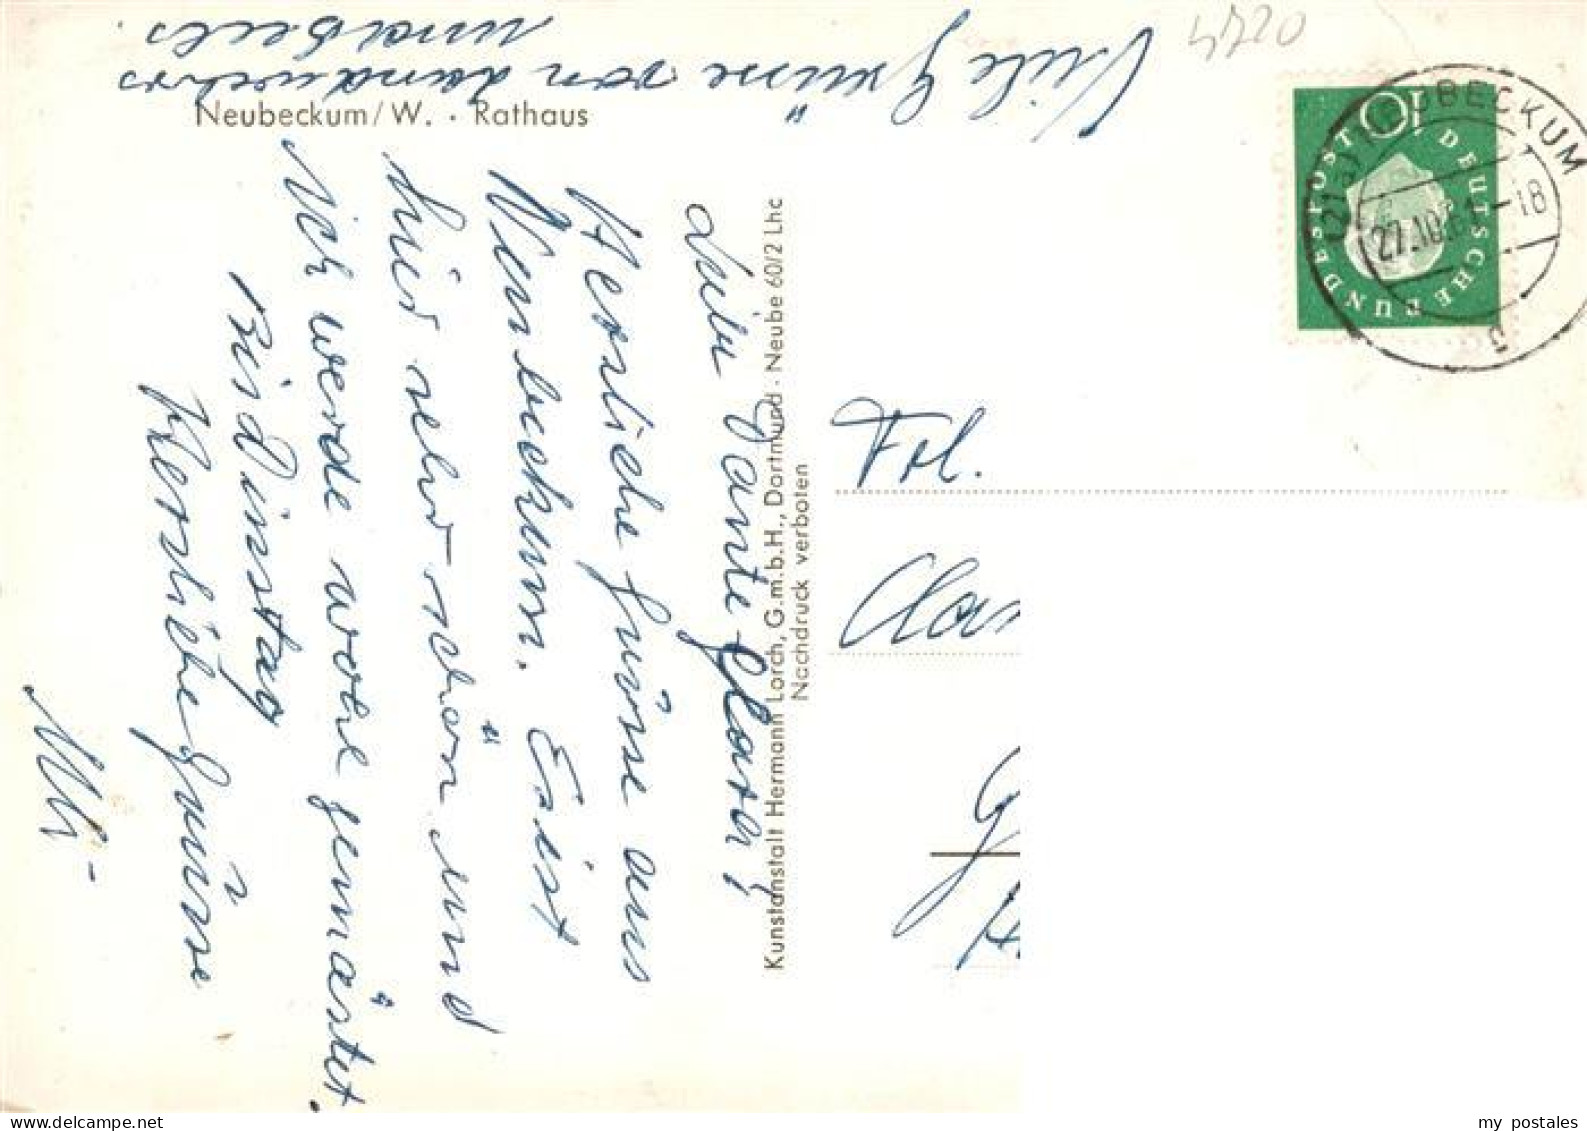 4720
Viele Grüsse von
Neubeckum/W. · Rathaus
DEUTSCHE BUNDESPOST
10
(21a) NEUBECKUM
27.10.61-18
a
Liebe Tante Clara!
Herzliche Grüsse aus
Neubeckum. Es ist
hier sehr schön und
ich werde wohl gemästet.
Bis Dinstag
Herzliche Grüsse
Kunstanstalt Hermann Lorch, G.m.b.H., Dortmund · Neube 60/2 Lhc
Nachdruck verboten
Frl.
Clar
my postales